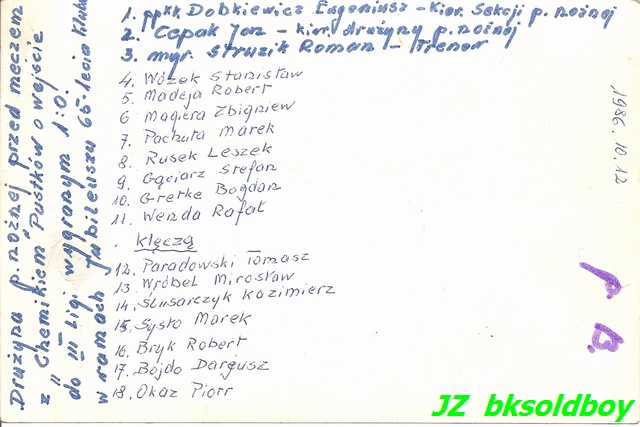 Drużyna p. nożnej przed meczem
z "Chemikiem" Pustków o wejście
do III Ligi wygranym 1:0.
w ramach jubileuszu 65-lecia klubu
1. ppłk Dobkiewicz Eugeniusz - Kier. Sekcji p. nożnej
2. Cepak Jan - kier. drużyny p. nożnej
3. mgr. Struzik Roman - Trener
4. Wózek Stanisław
5. Madeja Robert
6 Magiera Zbigniew
7 Pachuta Marek
8. Rusek Leszek
9. Gąciarz Stefan
10. Gretke Bogdan
11. Wenda Rafał
. klęczą
12. Paradowski Tomasz
13. Wróbel Mirosław
14. Ślusarczyk Kazimierz
15. Sysło Marek
16. Bryk Robert
17. Bojdo Dariusz
18. Okaz Piotr
1986.10.12
P. B.
JZ bksoldboy